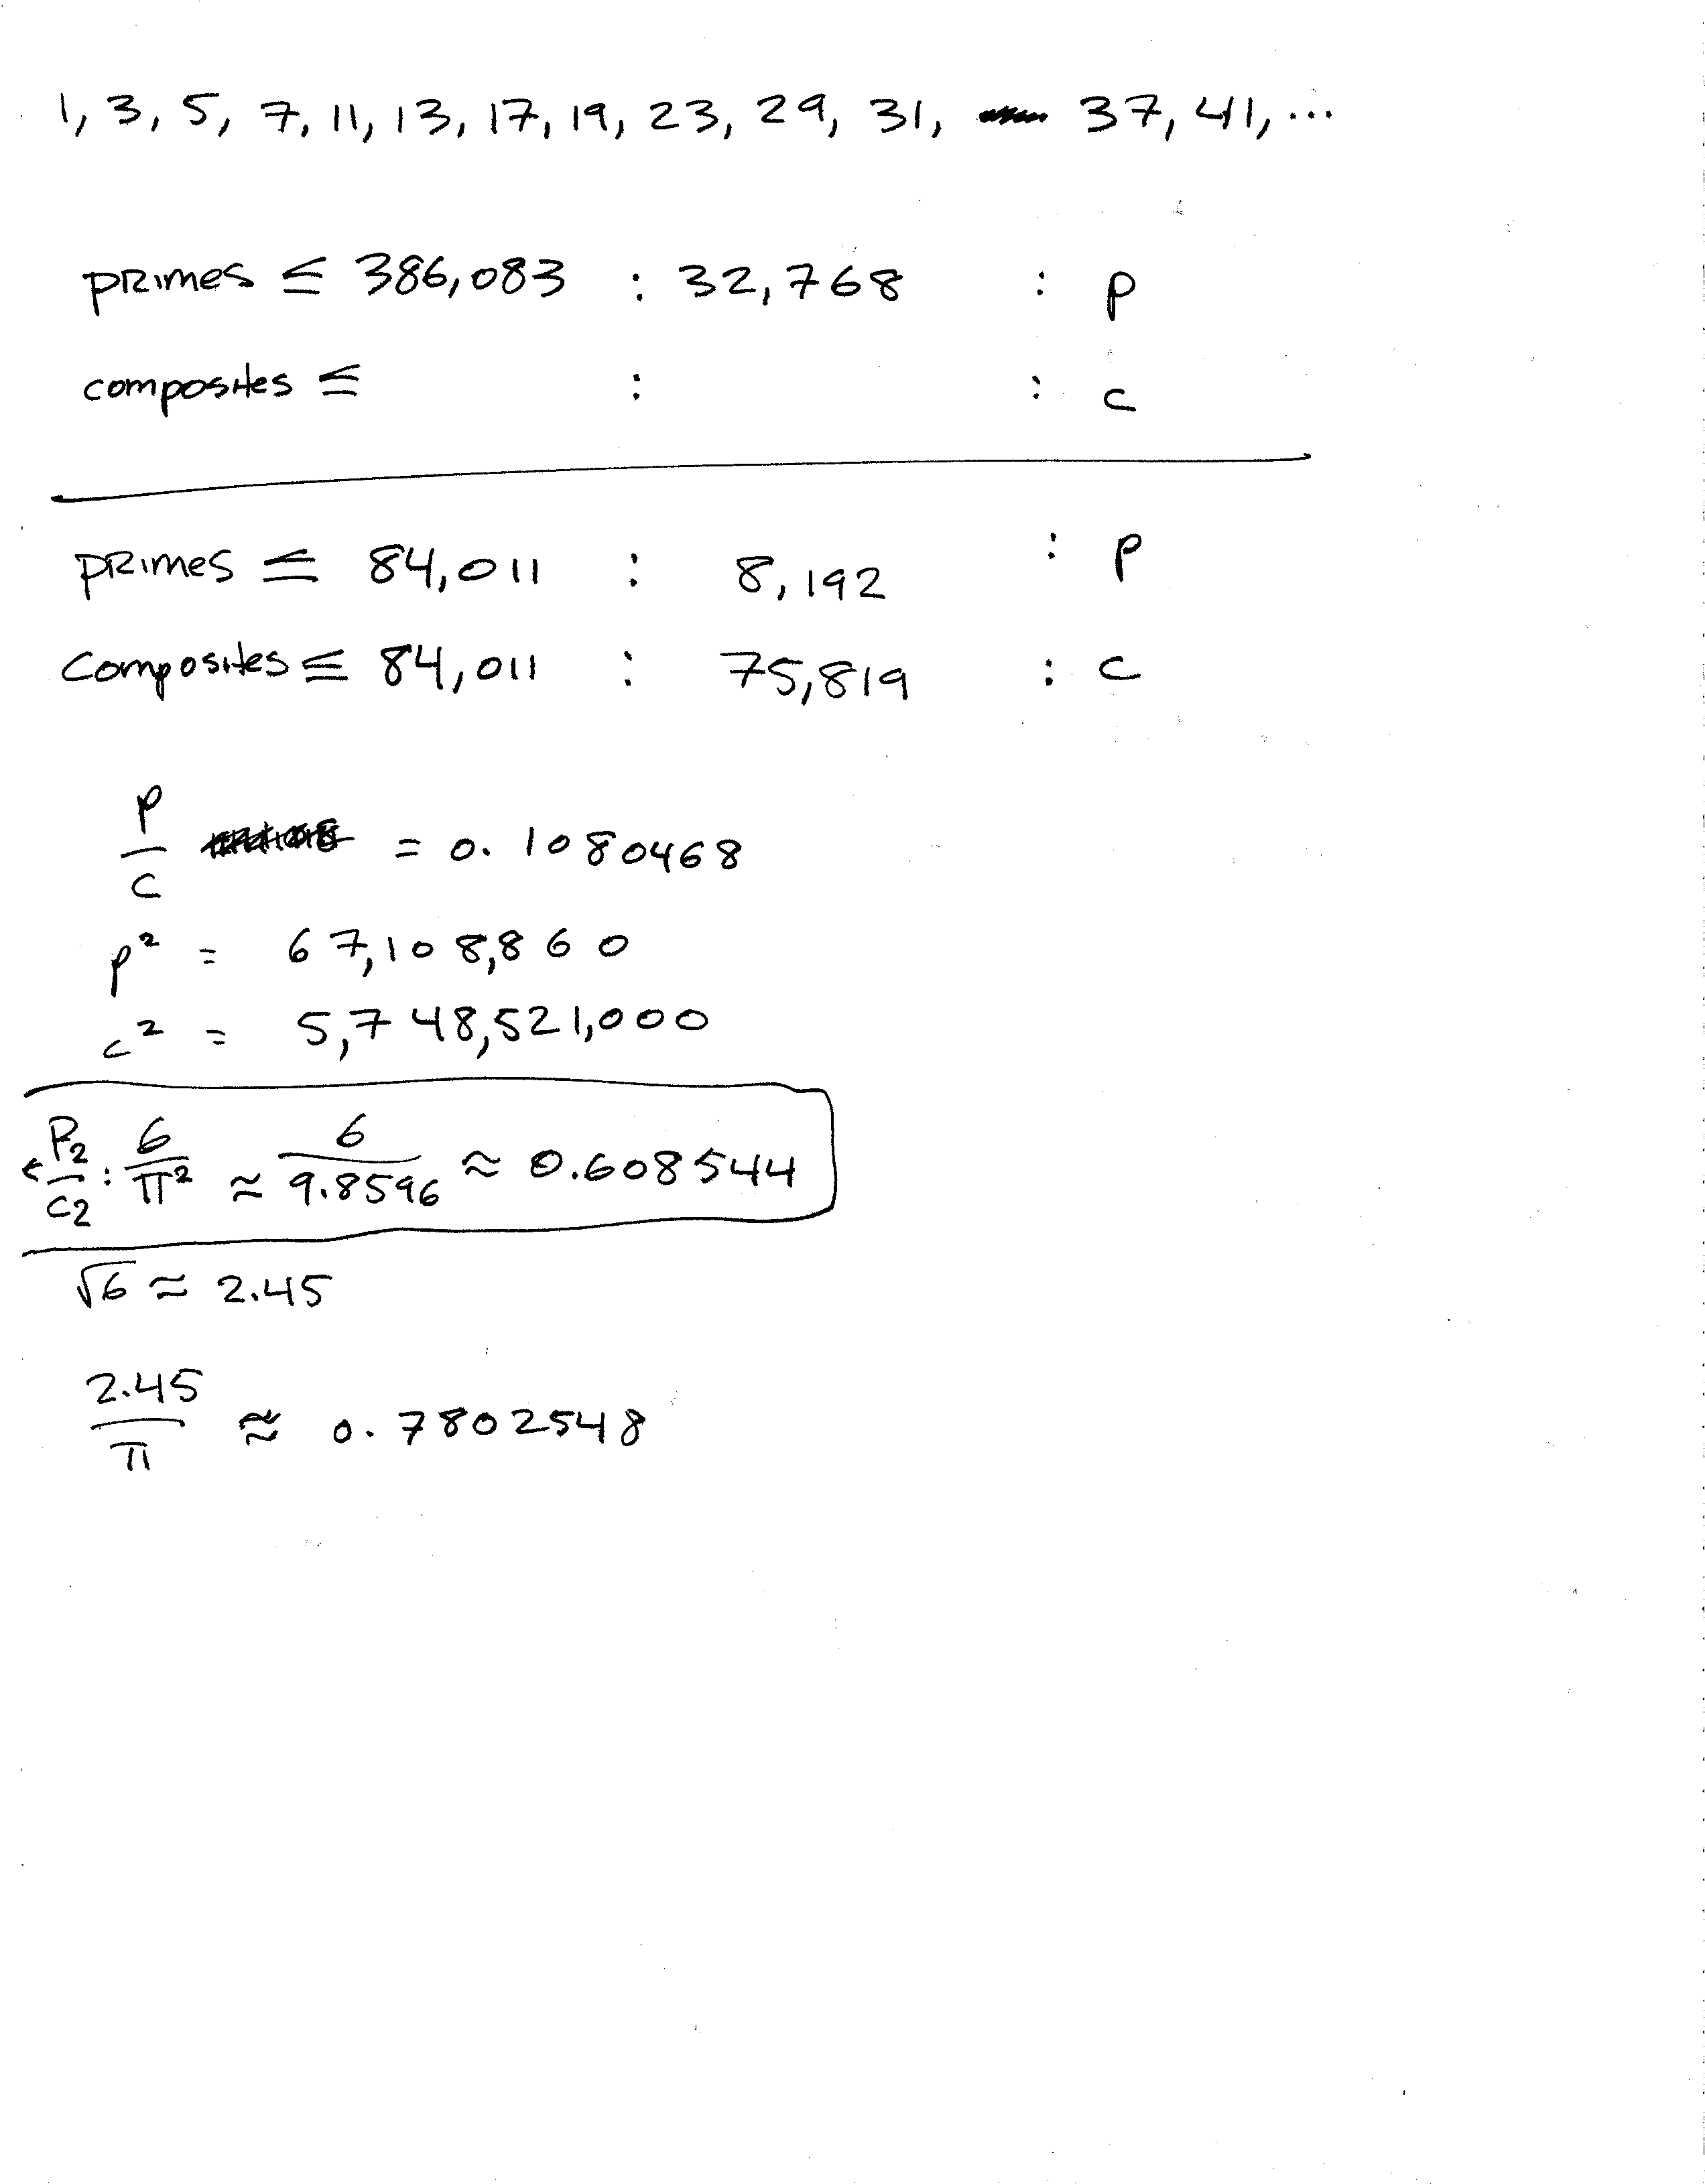 1, 3, 5, 7, 11, 13, 17, 19, 23, 29, 31, 37, 41, ...
primes ≤ 386,083 : 32,768 : p
composites ≤ : : c
primes ≤ 84,011 : 8,192 : p
composites ≤ 84,011 : 75,819 : c
p/c = 0.1080468
p² = 67,108,860
c² = 5,748,521,000
P₂/C₂ : 6/π² ≈ 6/9.8596 ≈ 0.608544
√6 ≈ 2.45
2.45/π ≈ 0.7802548